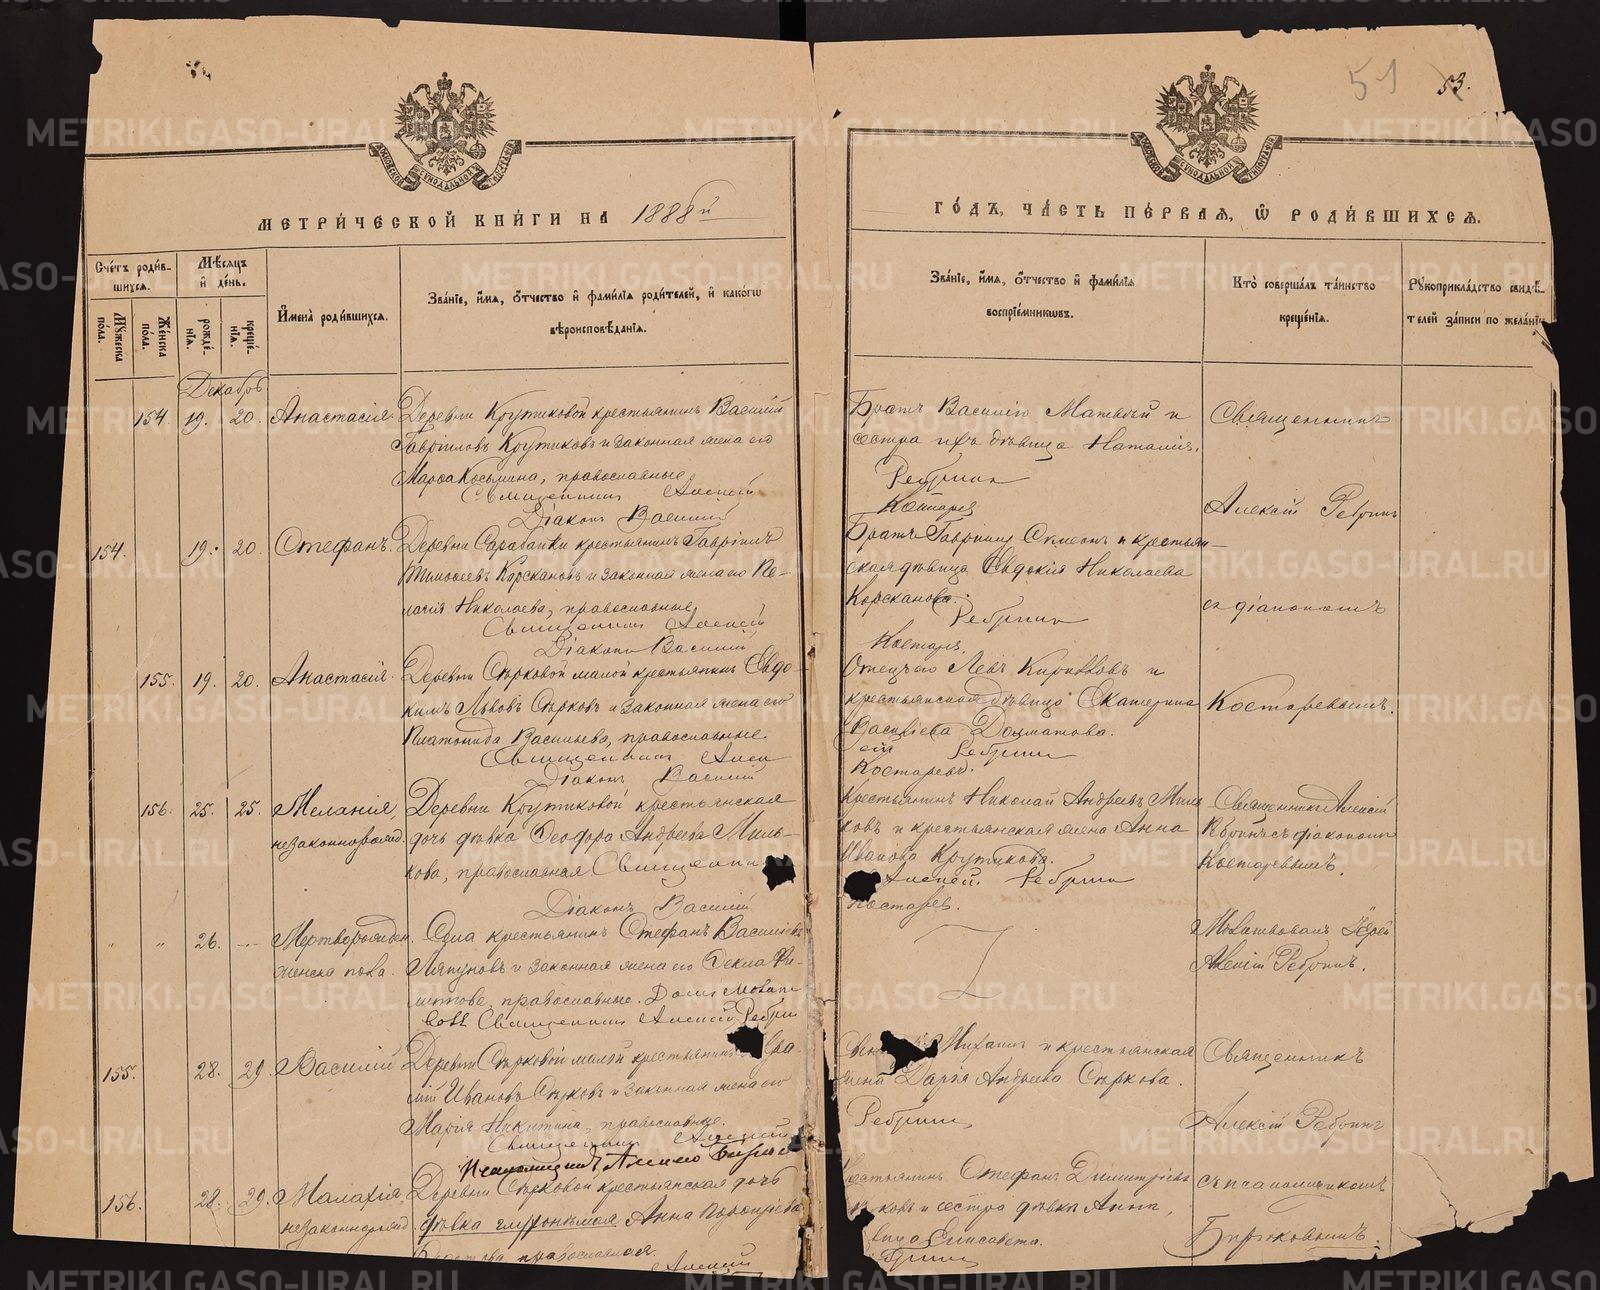 51
53.
МЕТРИ́ЧЕСКОЙ КНИ́ГИ НА 1888й
ГО́ДЪ, ЧА́СТЬ ПЕ́РВАЯ, Ѽ РОДИ́ВШИХСѦ.
Сче́тъ роди́в-
шихся.
Мѣ́сяцъ
и҆ де́нь.
И҆мена̀ роди́вшихся.
Зва́нїе, и҆́мя, ѻ҆́тчество и҆ фами́лїя роди́телей, и҆ како́гѡ
вѣроисповѣ́данїя.
Зва́нїе, и҆́мя, ѻ҆́тчество и҆ фами́лїя
воспрїе́мникѡвъ.
Кто̀ соверша́лъ та́инство
креще́нїя.
Рꙋкоприкла́дство свидѣ́-
телей за́писи по жела́нїю
Мꙋ́жеска
по́ла.
Же́нска
по́ла.
рожде́-
нїя.
креще́-
нїя.
Декабрь
154. 19. 20. Анастасія. Деревни Крутиковой крестьянинъ Василій
Гавріиловъ Крутиковъ и законная жена его
Марѳа Косьмина, православные
Священникъ Алексій
Діаконъ Василій
Братъ Василію Матвѣй и
сестра ихъ дѣвица Наталія.
Ребринъ
Костарев
Священникъ
Алексій Ребринъ
154. 19. 20. Стефанъ. Деревни крестьянинъ Гавріилъ
Тимоѳеевъ Корскановъ и законная жена его Пе-
лагія Николаева, православные
Священникъ Алексій
Діаконъ Василій
Братъ Гавріилу Симеонъ и крестьян-
ская дѣвица Евдокія Николаева
Корсканова.
Ребринъ
Костарев.
съ діакономъ
155. 19. 20. Анастасія. Деревни Сѣрковой малой крестьянинъ Евдо-
кимъ Львовъ Сѣрковъ и законная жена его
Платонида Васильева, православные.
Священникъ Алек
Діаконъ Василій
Отецъ его Левъ Кирилловъ и
крестьянская дѣвица Екатерина
Васильева Долматова.
сій Ребринъ
Костаревъ.
Костаревымъ.
156. 25. 25. Меланія, Деревни Крутиковой крестьянская
незаконнорожд. дочь дѣвка Ѳеодора Андреева Миль-
кова, православная Священни
Діаконъ Василій
Крестьянинъ Николай Андреевъ Миль
ковъ и крестьянская жена Анна
Иванова Крутикова.
Алексей Ребринъ
Костарев.
Священникъ Алексій
Ребринъ съ діакономъ
Костаревымъ.
" " 26. — Мертворожден. Села крестьянинъ Стефанъ Васильевъ
женска пола. Ляпуновъ и законная жена его Ѳекла Фи-
православные.
Священникъ Алексій Ребрин
Молитвовалъ Іерей
Алексій Ребринъ.
155. 28. 29. Василій Деревни Сѣрковой малой крестьянинъ
Ивановъ Сѣрковъ и законная жена его
Марія Никитина, православные.
Священникъ Алексій
Псаломщикъ
Михаилъ и крестьянская
жена Дарія Андреева Сѣркова.
Ребринъ
Священникъ
Алексій Ребринъ
156. 28. 29. Малахія, Деревни Сѣрковой крестьянская дочь
незаконнорожд. дѣвка глухонѣмая Анна
православная.
Алексій
Крестьянинъ Стефанъ Димитріевъ
ковъ и сестра дѣвки Анны,
Елисавета.
съ псаломщикомъ
Бирюковымъ.